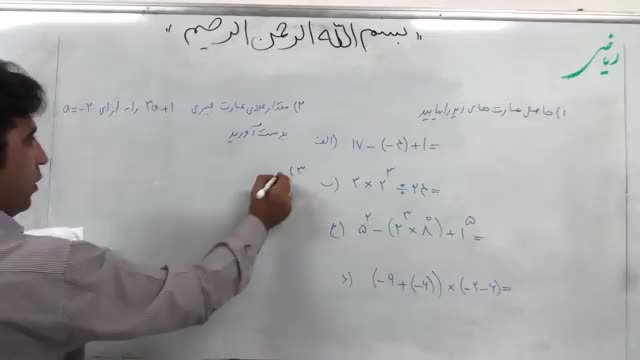 «بسم الله الرحمن الرحیم»
ریاضی
۱) حاصل عبارت های زیر را بیابید
الف) ۱۷ - (-۴) + ۱ =
ب) ۳ × ۲^۳ ÷ ۲۴ =
ج) ۵^۲ - (۲^۳ × ۸^۰) + ۱^۵ =
د) (-۹ + (-۶)) × (-۲ - ۶) =
۲) مقدار عددی عبارت جبری ۳a+۱ را به ازای a=-۲
بدست آورید
۳)